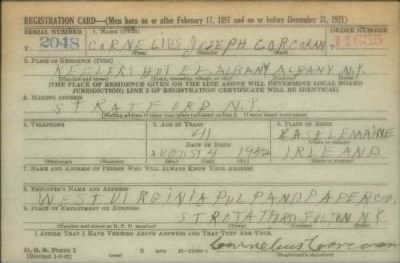 REGISTRATION CARD—(Men born on or after February 17, 1897 and on or before December 31, 1921)
SERIAL NUMBER 1. NAME (Print) ORDER NUMBER
2048 CORNELIUS JOSEPH CORCORAN 11655
(First) (Middle) (Last)
2. PLACE OF RESIDENCE (Print)
KEELERS HOTEL ALBANY ALBANY N.Y.
(Number and street) (Town, township, village, or city) (County) (State)
[THE PLACE OF RESIDENCE GIVEN ON THE LINE ABOVE WILL DETERMINE LOCAL BOARD
JURISDICTION; LINE 2 OF REGISTRATION CERTIFICATE WILL BE IDENTICAL]
3. MAILING ADDRESS
STRATFORD N.Y.
[Mailing address if other than place indicated on line 2. If same insert word same]
4. TELEPHONE 5. AGE IN YEARS 6. PLACE OF BIRTH
41 CASTLEMAINE
DATE OF BIRTH (Town or county)
AUGUST 4 IRLEAND
(Exchange) (Number) (Mo.) (Day) (Yr.) (State or country)
7. NAME AND ADDRESS OF PERSON WHO WILL ALWAYS KNOW YOUR ADDRESS
8. EMPLOYER'S NAME AND ADDRESS
WEST VIRGINIA PULP AND PAPER CO.
9. PLACE OF EMPLOYMENT OR BUSINESS
FULTON N.Y.
(Number and street or R. F. D. number) (Town) (County) (State)
I AFFIRM THAT I HAVE VERIFIED ABOVE ANSWERS AND THAT THEY ARE TRUE.
D. S. S. Form 1 Cornelius Corcoran
(Registrant's signature)